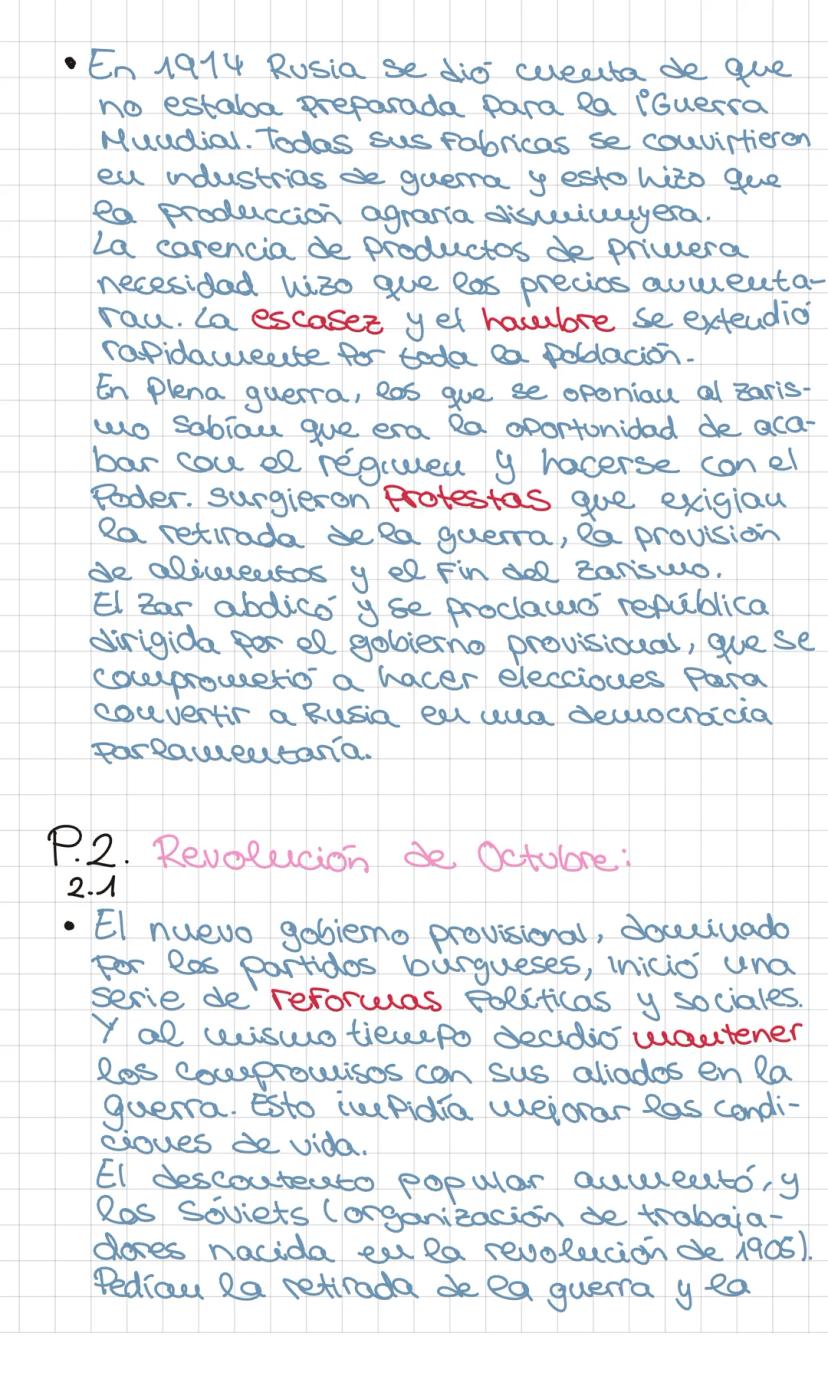 • En 1914 Rusia se dió cuenta de que
no estaba preparada para la 1ºGuerra
Mundial. Todas sus fabricas se convirtieron
en industrias de guerra y esto hizo que
la producción agraria disminuyera.
La carencia de productos de primera
necesidad hizo que los precios aumenta-
ran. La escasez y el hambre se extendió
rapidamente por toda la población.
En plena guerra, los que se oponían al zaris-
mo sabían que era la oportunidad de aca-
bar con el régimen y hacerse con el
Poder. Surgieron Protestas que exigían
la retirada de la guerra, la provisión
de alimentos y el fin del zarismo.
El zar abdicó y se proclamó república
dirigida por el gobierno provisional, que se
comprometió a hacer elecciones para
convertir a Rusia en una democrácia
parlamentaría.
P.2. Revolución de Octubre:
2.1
• El nuevo gobierno provisional, dominado
por los partidos burgueses, inició una
serie de reformas políticas y sociales.
Y al mismo tiempo decidió mantener
los compromisos con sus aliados en la
guerra. Esto impidía mejorar las condi-
ciones de vida.
El descontento popular aumentó, y
los Sóviets (organización de trabaja-
dores nacida en la revolución de 1905).
Pedían la retirada de la guerra y la